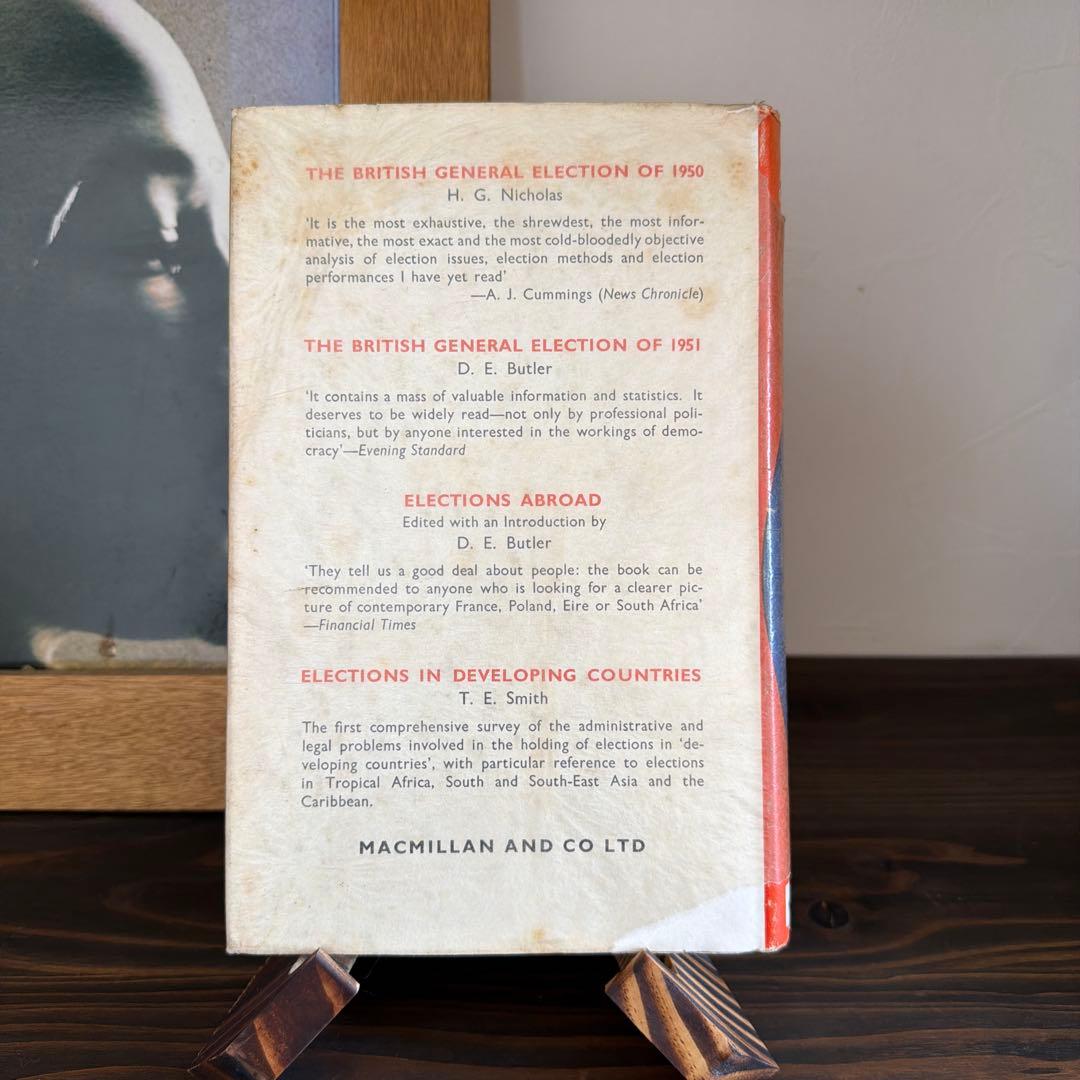 THE BRITISH GENERAL ELECTION OF 1950
H. G. Nicholas
'It is the most exhaustive, the shrewdest, the most infor-
mative, the most exact and the most cold-bloodedly objective
analysis of election issues, election methods and election
performances I have yet read'
—A. J. Cummings (News Chronicle)
THE BRITISH GENERAL ELECTION OF 1951
D. E. Butler
'It contains a mass of valuable information and statistics. It
deserves to be widely read—not only by professional poli-
ticians, but by anyone interested in the workings of demo-
cracy'—Evening Standard
ELECTIONS ABROAD
Edited with an Introduction by
D. E. Butler
'They tell us a good deal about people: the book can be
recommended to anyone who is looking for a clearer pic-
ture of contemporary France, Poland, Eire or South Africa'
—Financial Times
ELECTIONS IN DEVELOPING COUNTRIES
T. E. Smith
The first comprehensive survey of the administrative and
legal problems involved in the holding of elections in 'de-
veloping countries', with particular reference to elections
in Tropical Africa, South and South-East Asia and the
Caribbean.
MACMILLAN AND CO LTD